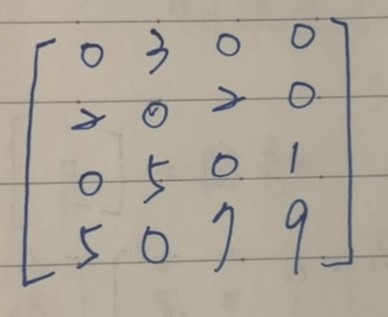 0 3 0 0
2 0 2 0
0 5 0 1
5 0 7 9